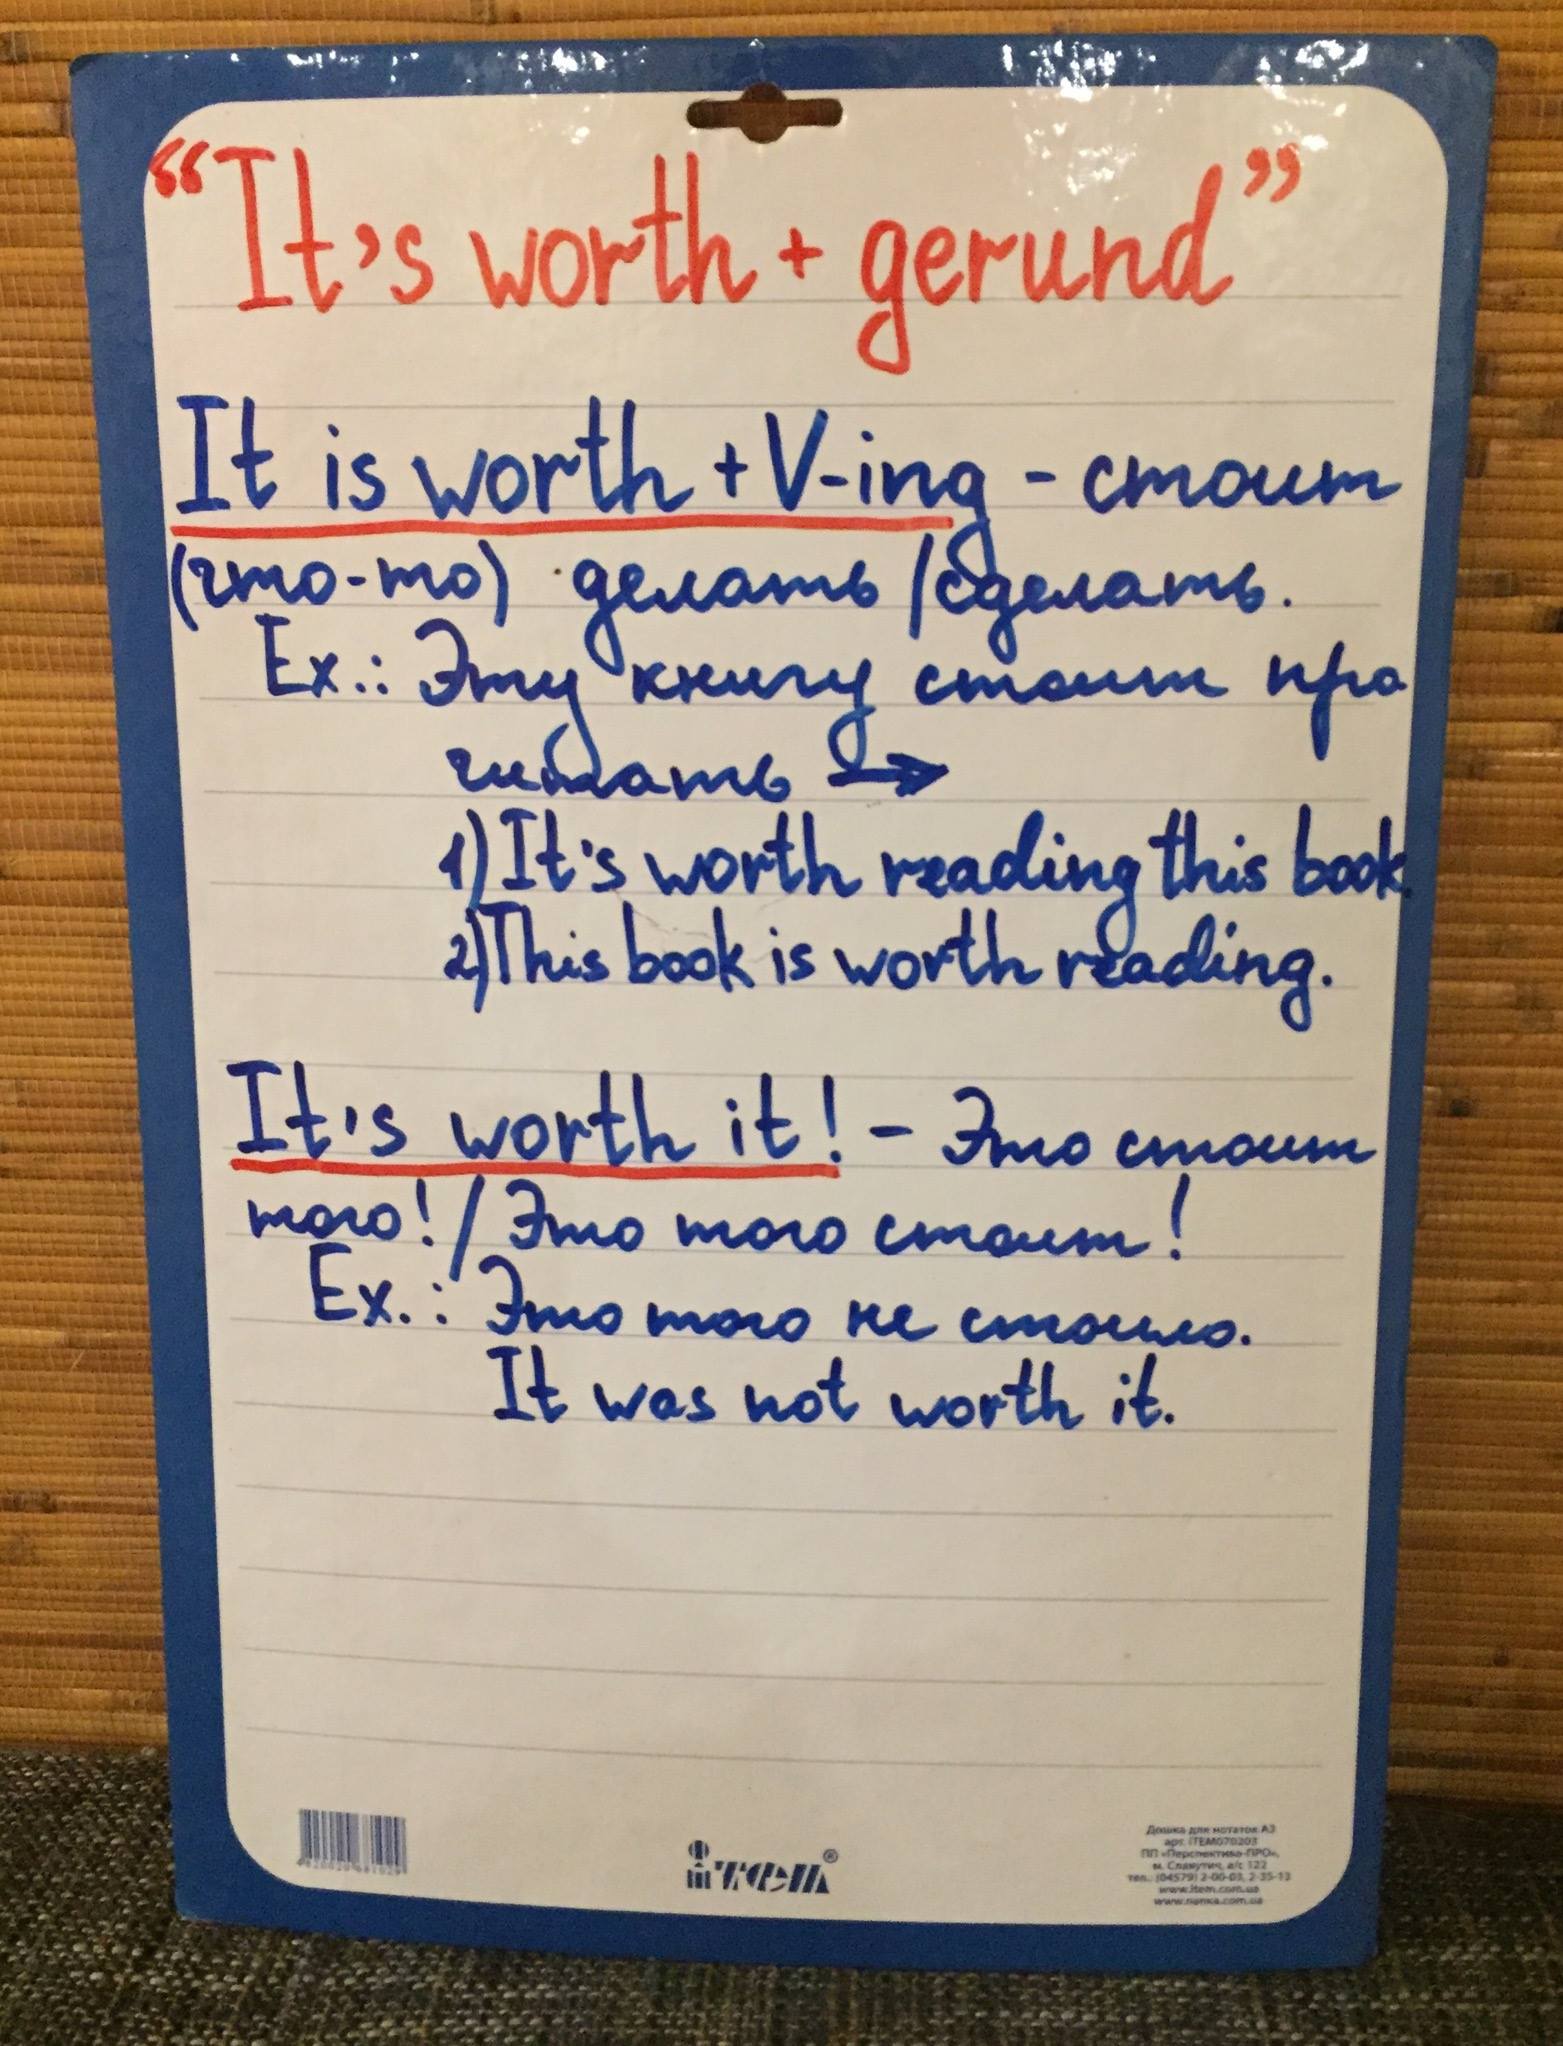 “It's worth + gerund”
It is worth + V-ing - стоит
(что-то) делать / сделать.
Ex.: Эту книгу стоит про
читать →
1) It's worth reading this book.
2) This book is worth reading.
It's worth it! - Это стоит
того! / Это того стоит!
Ex.: Это того не стоило.
It was not worth it.
item®
Дошка для нотаток А3
арт. ITEM070203
ПП «Перспектива-ПРО»,
м. Славутич, а/с 122
тел.: (04579) 2-00-03, 2-35-13
www.item.com.ua
www.papka.com.ua